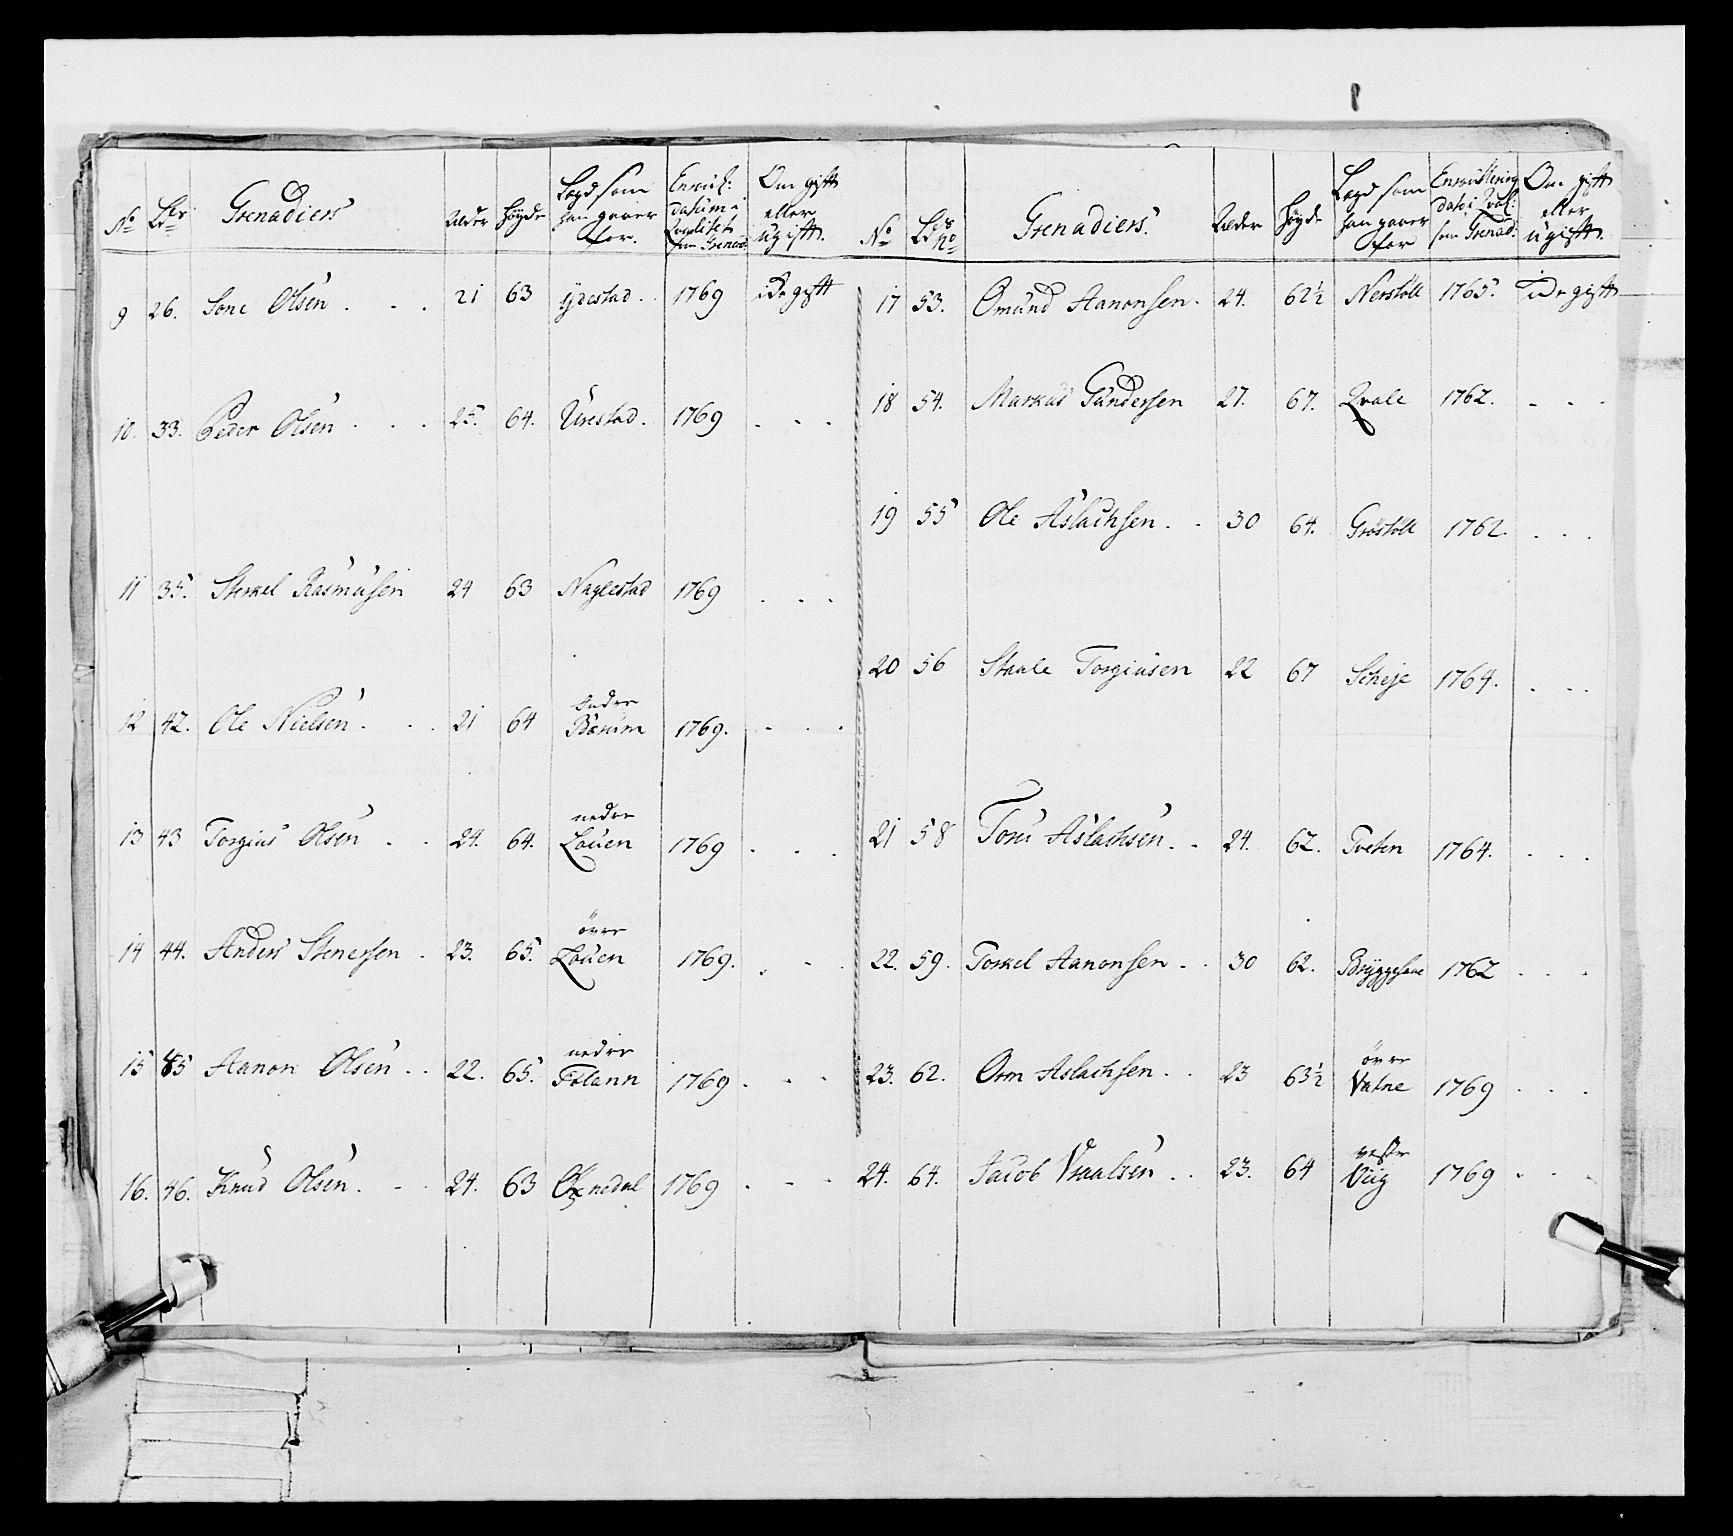 No Ld No Grenadiers Alder Høyde Legd som han gaaer for. Enrull: datum i Qvalitet som Grenad: Om gift eller Ugift.
9 26. Tone Olsen . . . 21 63 ydestad . . 1769 icke gift
10. 33. Peder Olsen . . . 25. 64. Ürestad . 1769 . . .
11 35. Sterkel Rasmusen 24 63 Naglestad 1769 . . .
12 42. Ole Nielsen . . . 21 64 Indre Bærum 1769. . . .
13 43 Torgius Olsen . . 24. 64. nedre Louen 1769 . . .
14 44. Anders Stenersen . 23. 65. övre Louen 1769. . . .
15 45 Aanon Olsen . . 22. 65. nedre Foelann 1769 . . .
16. 46. Knud Olsen . . . 24. 63 Oxnedal 1769 . . .
No Ld No Grenadiers. Alder Høyde Legd som han gaaer for Enrullering dato i Qval: som Grenad: Om gift eller ugift.
17 53. Omund Aanonsen . 24. 62½ Nerstöll 1765. icke gift
18 54. Markus Gundersen 27. 67. Qvale 1762. . . .
19 55 Ole Aslachsen . . 30 64. Gröstöll 1762. . . .
20 56 Staale Torgiusen 22 67 Scheje 1764. . . .
21 58 Tore Aslachsen . . 24. 62. Tveten 1764. . . .
22. 59. Torkel Aanonsen . . 30 62. Bryggesaae 1762 . . .
23. 62. Orm Aslachsen . . 23 63½ övre Vatne 1769 . . .
24. 64. Jacob Vraalsen . . 23. 64 vestre Viig 1769 . . .